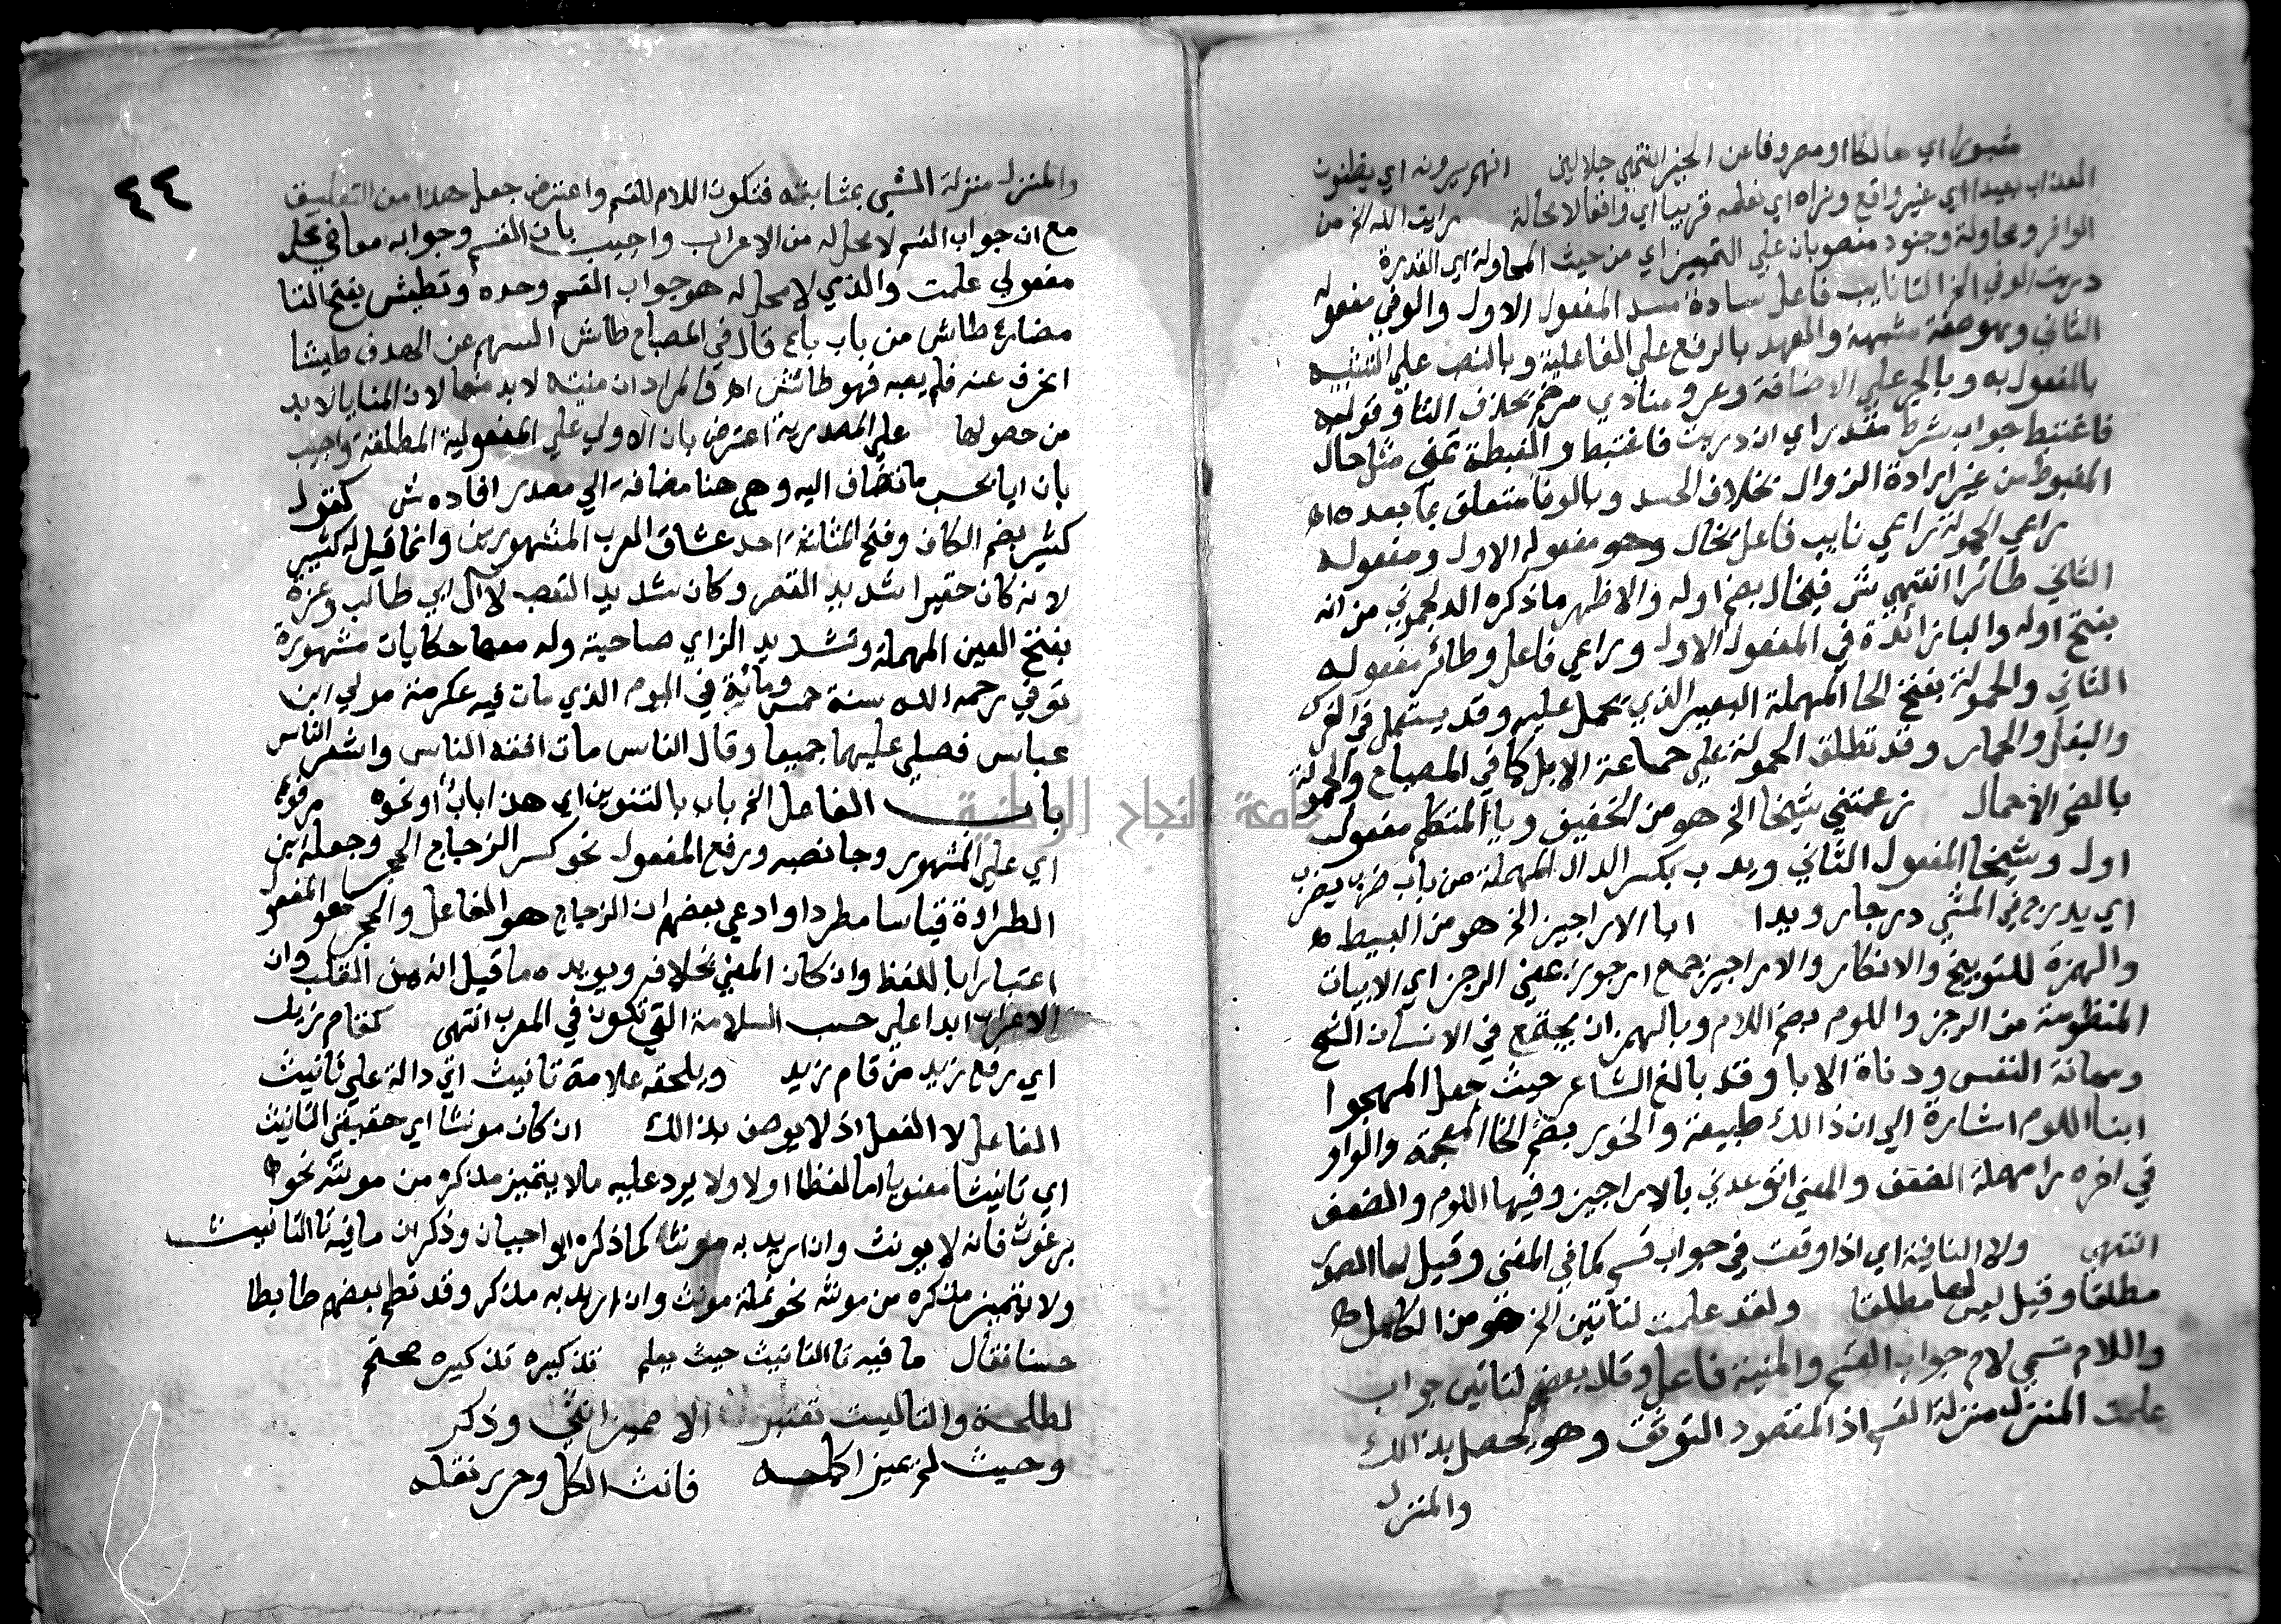 مثبورا اي هالكا او مصروفا عن الخير انتهي جلالين انهم يرونه اي يظنون
العذاب بعيدا اي غير واقع ونراه اي نعلمه قريبا اي واقعا لا محالة رايت الله الخ من
الوافر ومحاولة وجنود منصوبان علي التمييز اي من حيث المحاولة اي القدرة
دريت الوفي الخ التا نايب فاعل سادة مسد المفعول الاول والوفي مفعوله
الثاني وهو صفة مشبهة والعهد بالرفع علي الفاعلية وبالنصب علي التشبيه
بالمفعول به وبالجر علي الاضافة وعرو منادي مرخم بحذف التا وقوله
فاغتبط جواب شرط مقدر اي ان دريت فاغتبط والغبطة تمني مثل حال
المغبوط من غير ارادة الزوال بخلاف الحسد وبالوفا متعلق بما بعده اه
راعي الحمولة راعي نايب فاعل يخال وهو مفعوله الاول ومفعوله
الثاني طائرا انتهي ش فيخال بضم اوله والاظهر ما ذكره الدلجموني من انه
بفتح اوله والبا زائدة في المفعول الاول وراعي فاعل وطائر مفعوله
الثاني والحمولة بفتح الحا المهملة البعير الذي يحمل عليه وقد يستعمل في الفرس
والبغل والحمار وقد تطلق الحمولة علي جماعة الابل كما في المصباح والحمولة
بالضم الاحمال زعمتني شيخا الخ هو من الخفيف ويا المتكلم مفعول
اول وشيخا المفعول الثاني ويدب بكسر الدال المهملة من باب ضرب يضرب
اي يدرج في المشي درجا رويدا ابا الاراجيز الخ هو من البسيط
والهمزة للتوبيخ والانكار والاراجيز جمع ارجوزة بمعني الرجز اي الابيات
المنظومة من الرجز واللوم بضم اللام وبالهمز ان يجتمع في الانسان الشح
ومهانة النفس ودناة الابا وقد بالغ الشاعر حيث جعل المهجوا
ابنا اللوم اشارة الي ان ذالك طبيعة والخور بضم الخا المعجمة والواو
في اخره را مهملة الضعف والمعني اتوعدني بالاراجيز وفيها اللوم والضعف
انتهي ولا النافية اي اذا وقعت في جواب قسم كما في المغني وقيل لها الصدر
مطلقا وقيل ليس لها مطلقا ولقد علمت لتاتين الخ هو من الكامل
واللام تسمي لام جواب القسم والمنية فاعل وقال بعضهم لتاتين جواب
علمت المنزل منزلة القسم اذ المقصود التوثق وهو يحصل بذالك
والمنزل
٤٤
والمنزل منزلة الشي بمثابته فتكون اللام للقسم واعترض جعل هذا من التعليق
مع ان جواب القسم لا محل له من الاعراب واجيب بان القسم وجوابه معا في محل
مفعولي علمت والذي لا محل له هو جواب القسم وحده وتطيش بفتح التا
مضارع طاش من باب باع قال في المصباح طاش السهم عن الهدف طيشا
انحرف عنه فلم يصبه فهو طائش اه والمراد ان منيته لابد منها لان المنايا لابد
من حصولها علي المصدرية اعترض بان الاولي علي المفعولية المطلقة واجيب
بان ايا بحسب ما تضاف اليه وهي هنا مضافة الي مصدر افاده ش كقول
كثير بضم الكاف وفتح المثلثة احد عشاق العرب المشهورين وانما قيل له كثير
لانه كان حقيرا شديد القصر وكان شديد التعصب لال ابي طالب وعزة
بفتح العين المهملة وتشديد الزاي صاحبته وله معها حكايات مشهورة
توفي رحمه الله سنة خمس ومائة في اليوم الذي مات فيه عكرمة مولي ابن
عباس فصلي عليهما جميعا وقال الناس مات افقه الناس واشعر الناس
باب الفاعل الخ باب بالتنوين اي هذا باب او نحوه مرفوع
اي علي المشهور وجا نصبه ورفع المفعول نحو كسر الزجاج الحجر وجعله ابن
الطراوة قياسا مطردا وادعي بعضهم ان الزجاج هو الفاعل والحجر هو المفعول
اعتبارا باللفظ وان كان المعني بخلافه ويويده ما قيل انه من القلب وان
الاعراب ابدا علي حسب السلامة التي تكون في المعرب انتهي كقام زيد
اي رفع زيد من قام زيد ويلحقه علامة تانيث اي دالة علي تانيث
الفاعل لا الفعل اذ لا يوصف بذالك ان كان مونثا اي حقيقي التانيث
اي تانيثا معنويا اما لفظا اولا ولا يرد عليه مالا يتميز مذكره من مونثه نحو
برغوث فانه لا يونث وان اريد به مونثا كما ذكره ابو احيان وذكر ان ما فيه تا التانيث
ولا يتميز مذكره من مونثه نحو نملة مونث وان اريد به مذكر وقد نظم بعضهم ضابطا
حسنا فقال ما فيه تا التانيث حيث يعلم تذكيره تذكيره محتم
لطلحة والتاليست تعتبر الا مميز انثي وذكر
وحيث لم عيز اكلمه فانث الكل وحرر نقله